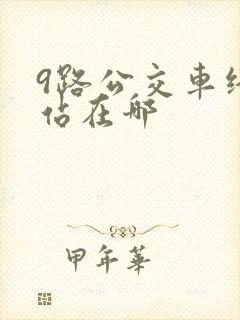 9路公交車终
站在哪
甲年華